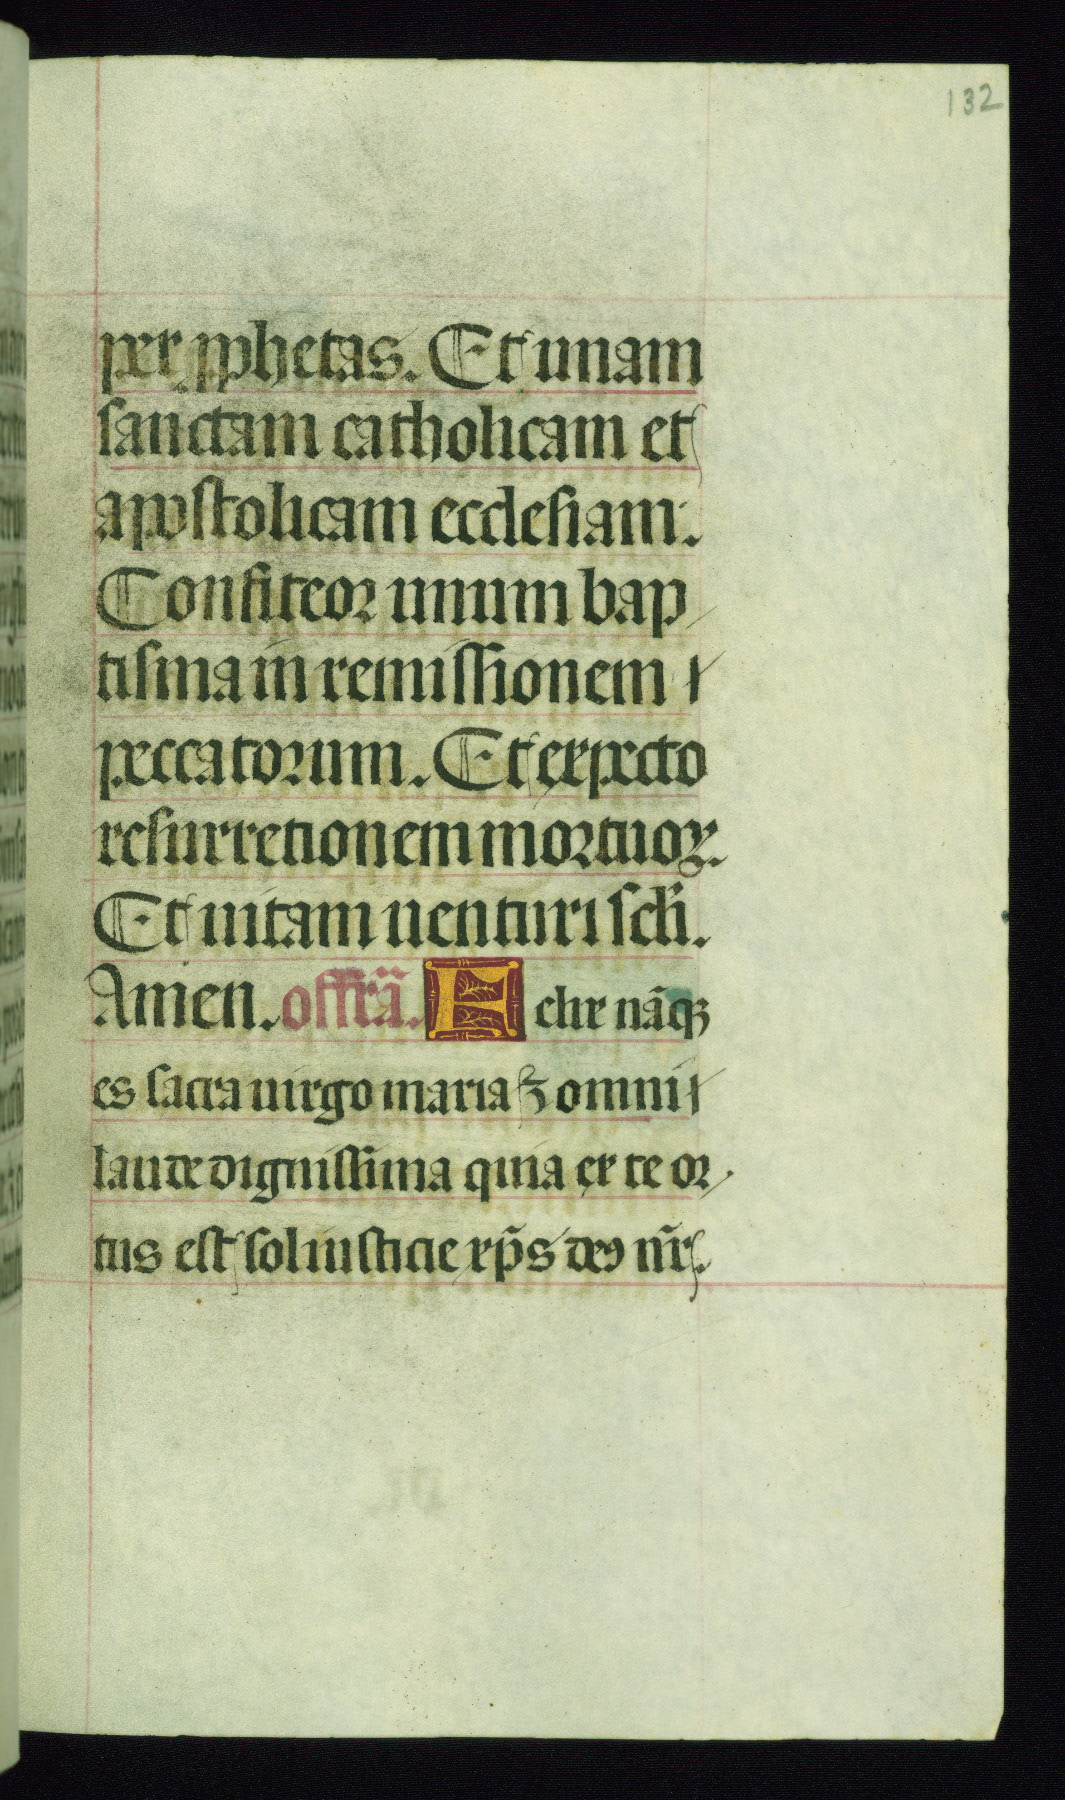 132
per pphetas. Et unam
sanctam catholicam et
apostolicam ecclesiam.
Confiteor unum bap
tisma in remissionem
peccatorum. Et expecto
resurretionem mortuoꝝ.
Et uitam uenturi scl̃i.
Amen. offr̃ã. E elix nãqꝫ
es sacra uirgo maria ⁊ omni
laude dignissima quia ex te or
tus est sol iusticie xp̃s deꝰ nr̃.